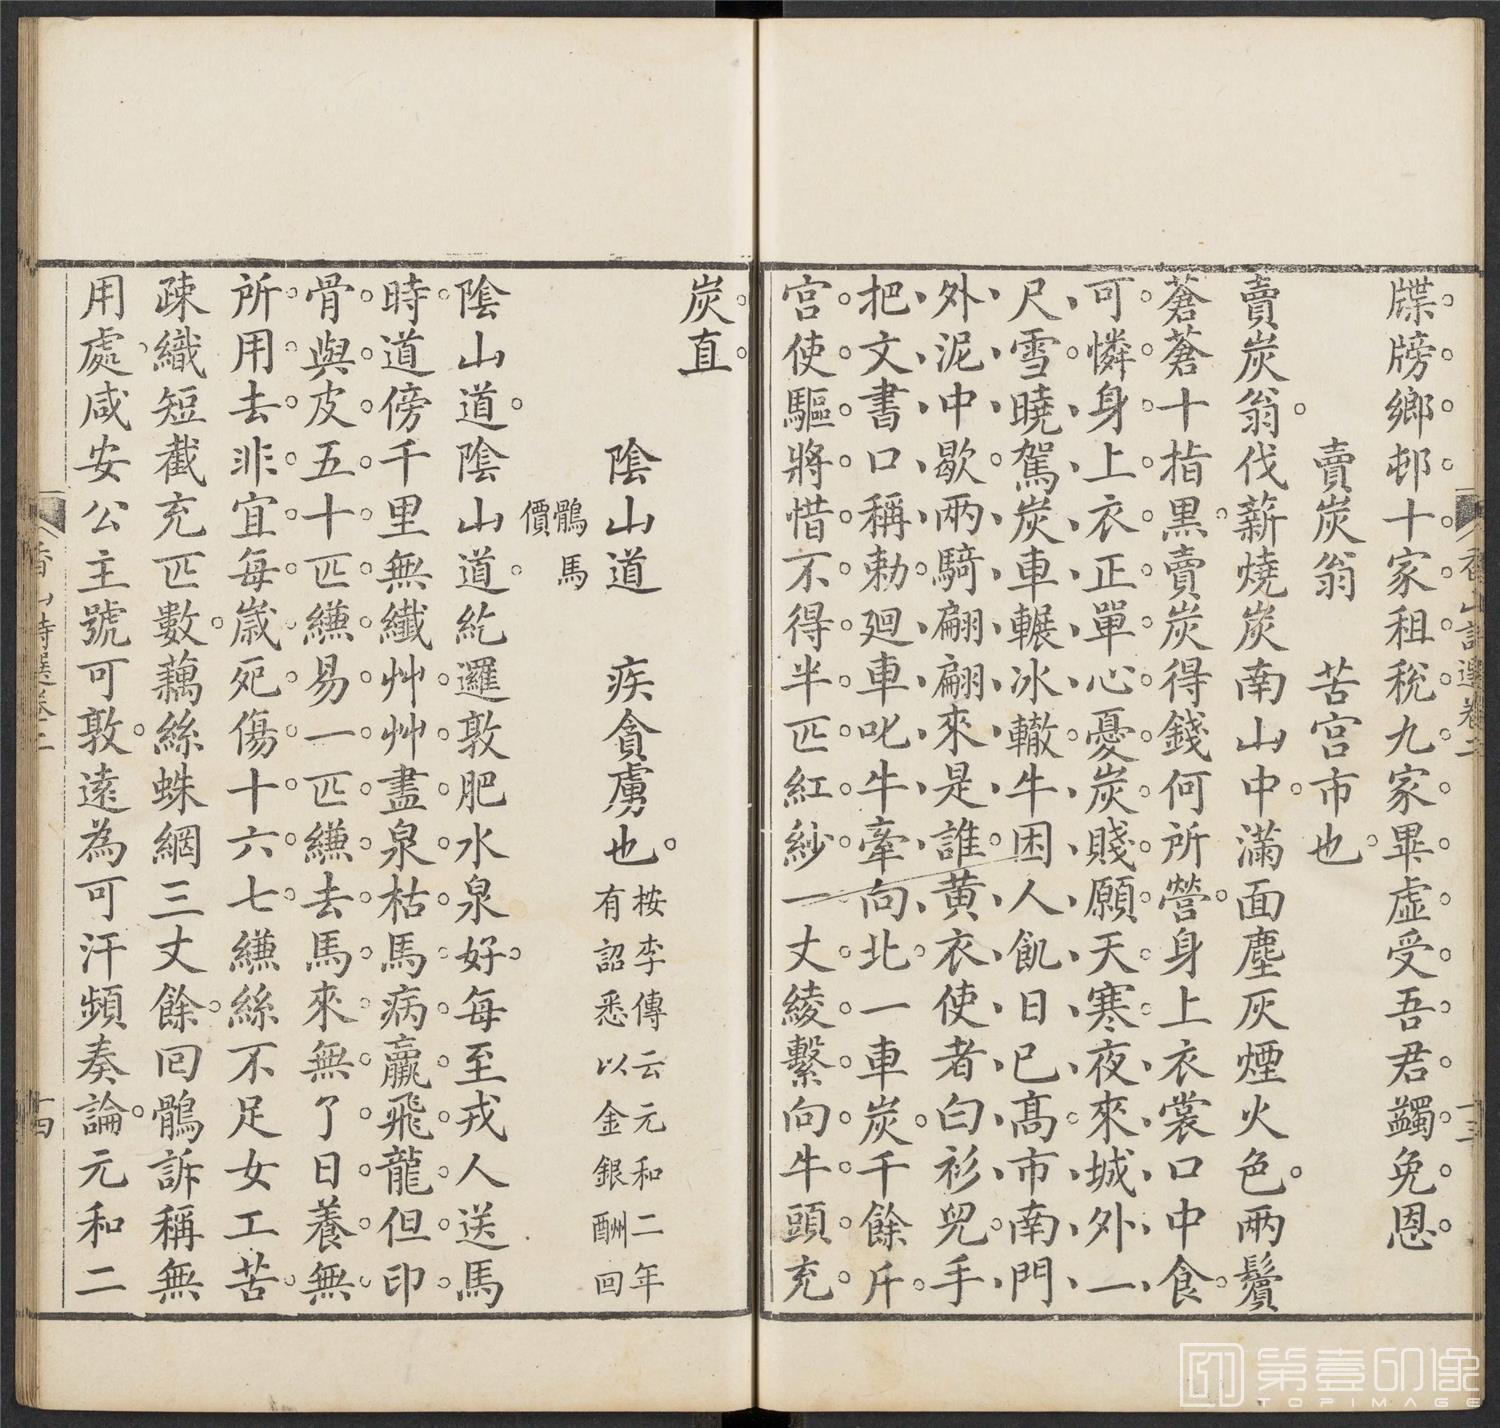 牒牓鄉邨十家租稅九家畢虛受吾君蠲免恩
賣炭翁　苦宮市也
賣炭翁伐薪燒炭南山中滿面塵灰煙火色兩鬢
蒼蒼十指黑賣炭得錢何所營身上衣裳口中食
可憐身上衣正單心憂炭賤願天寒夜來城外一
尺雪曉駕炭車輾冰轍牛困人飢日已高市南門
外泥中歇兩騎翩翩來是誰黃衣使者白衫兒手
把文書口稱勅廻車叱牛牽向北一車炭千餘斤
宮使驅將惜不得半匹紅紗一丈綾繫向牛頭充
炭直
陰山道　疾貪虜也
桉李傳云元和二年
有詔悉以金銀酬回
鶻馬
價
陰山道陰山道紇邏敦肥水泉好每至戎人送馬
時道傍千里無纖艸艸盡泉枯馬病羸飛龍但印
骨與皮五十匹縑易一匹縑去馬來無了日養無
所用去非宜每歲死傷十六七縑絲不足女工苦
疎織短截充匹數藕絲蛛網三丈餘囘鶻訴稱無
用處咸安公主號可敦遠為可汗頻奏論元和二
香山詩選卷二
十三
香山詩選卷二
十四
第壹印像
TOPIMAGE